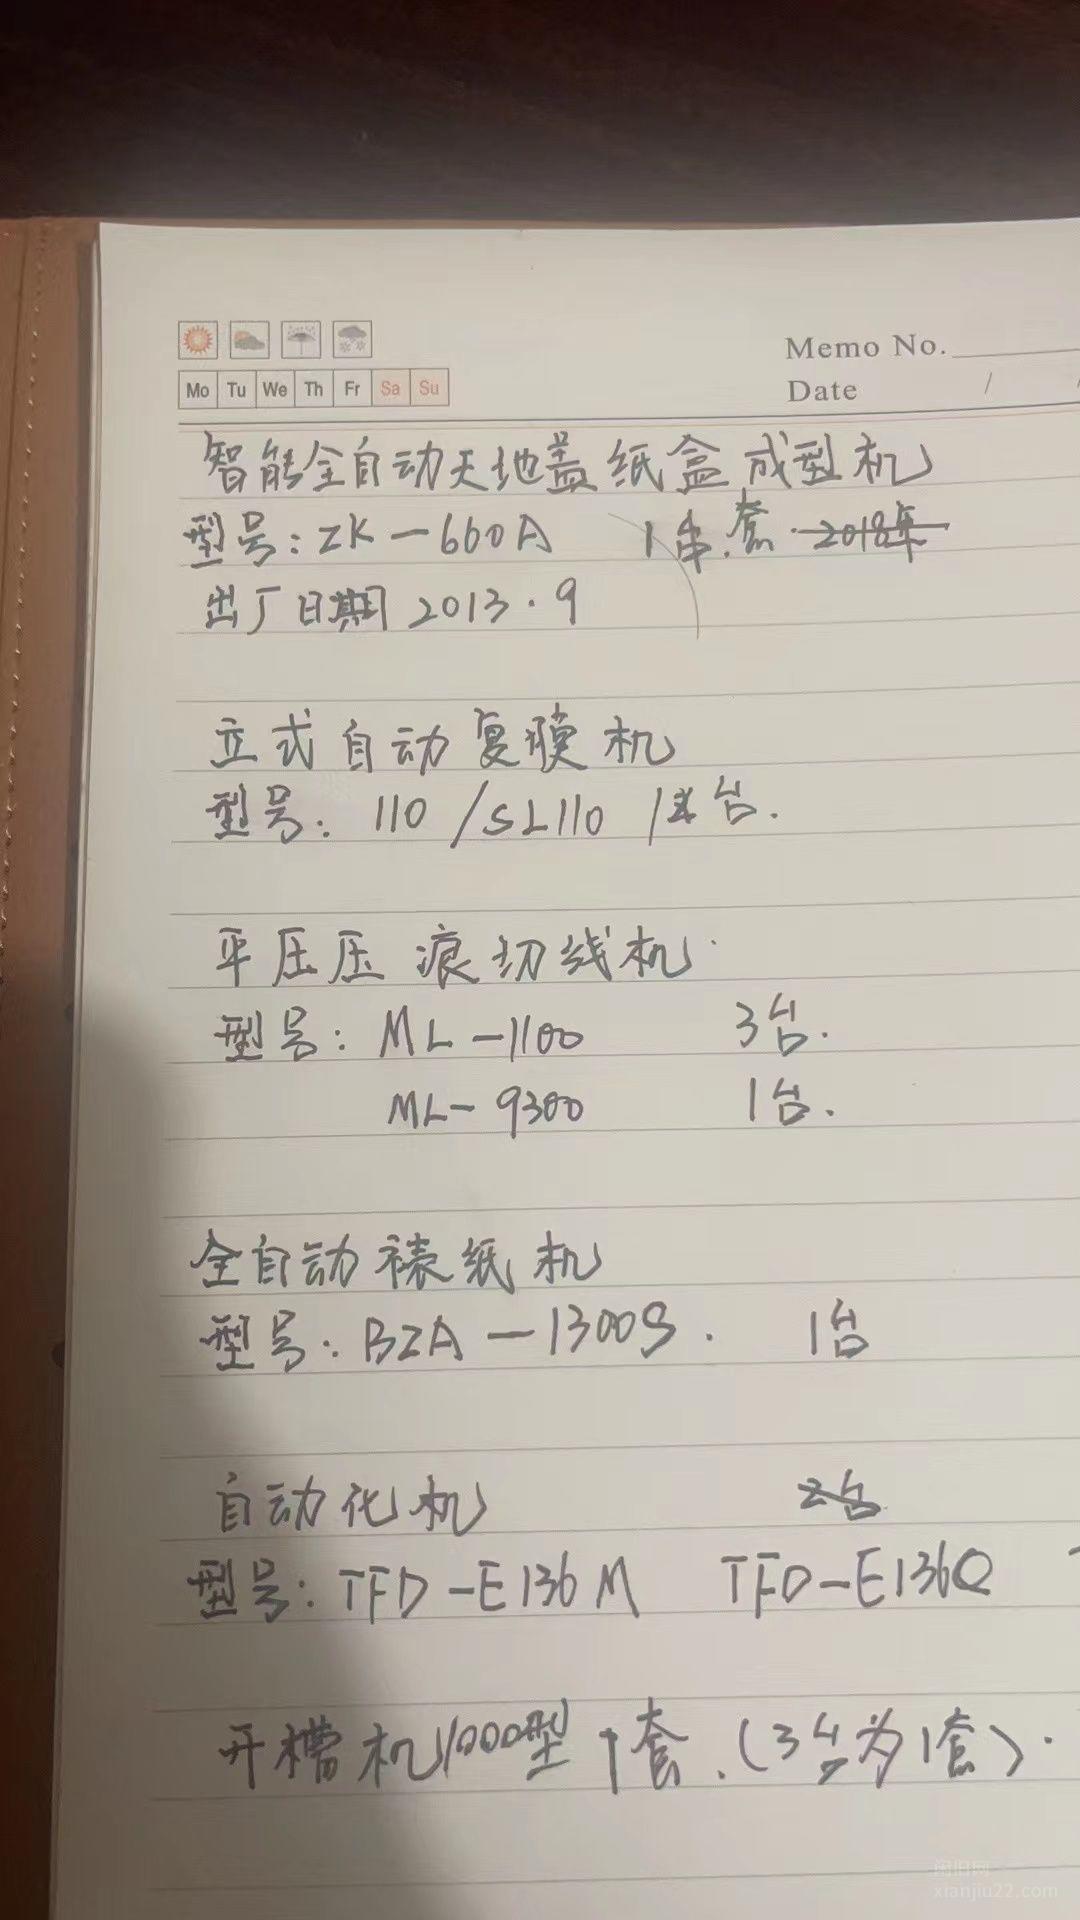 Memo No.
Mo Tu We Th Fr Sa Su
Date / /
智能全自动天地盖纸盒成型机
型号:ZK-660A 1套 2018年
出厂日期 2013.9
立式自动复膜机
型号: 110/SL110 1台.
平压压浪切线机
型号: ML-1100 3台.
ML-9300 1台.
全自动裱纸机
型号:BZA-1300S. 1台
自动化机 2台
型号:TFD-E136M TFD-E136Q
开槽机1000型 1套.(3台为1套).
闲旧网
xianjiu22.com